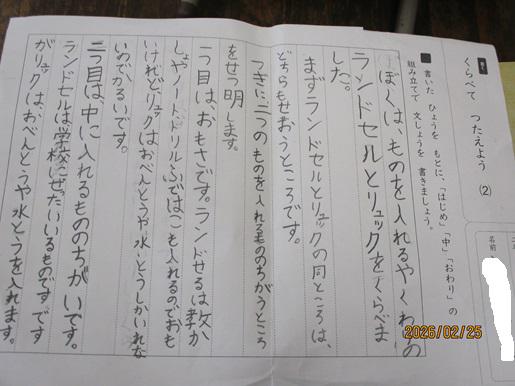 書く
くらべて つたえよう (2)
名前
書いた ひょうを もとに、「はじめ」「中」「おわり」の
組み立てで 文しょうを 書きましょう。
ぼくは、ものを入れるやくわりの
ランドセルとリュックをくらべま
した。
まずランドセルとリュックの同ところは、
どちらもせおうところです。
つぎに二つのものを入れるもののちがうところ
をせつ明します。
一つ目は、おもさです。ランドせるは
しょやノート、ドリルふではこも入れるのでおも
いけれど、リュックはおべんとうや水とうしかいれな
いのでかるいです。
二つ目は、中に入れるもののちがいです。
ランドセルは学校にぜったいいるものですです
がリュックは、おべんとうや水とうを入れます。
2026/02/25